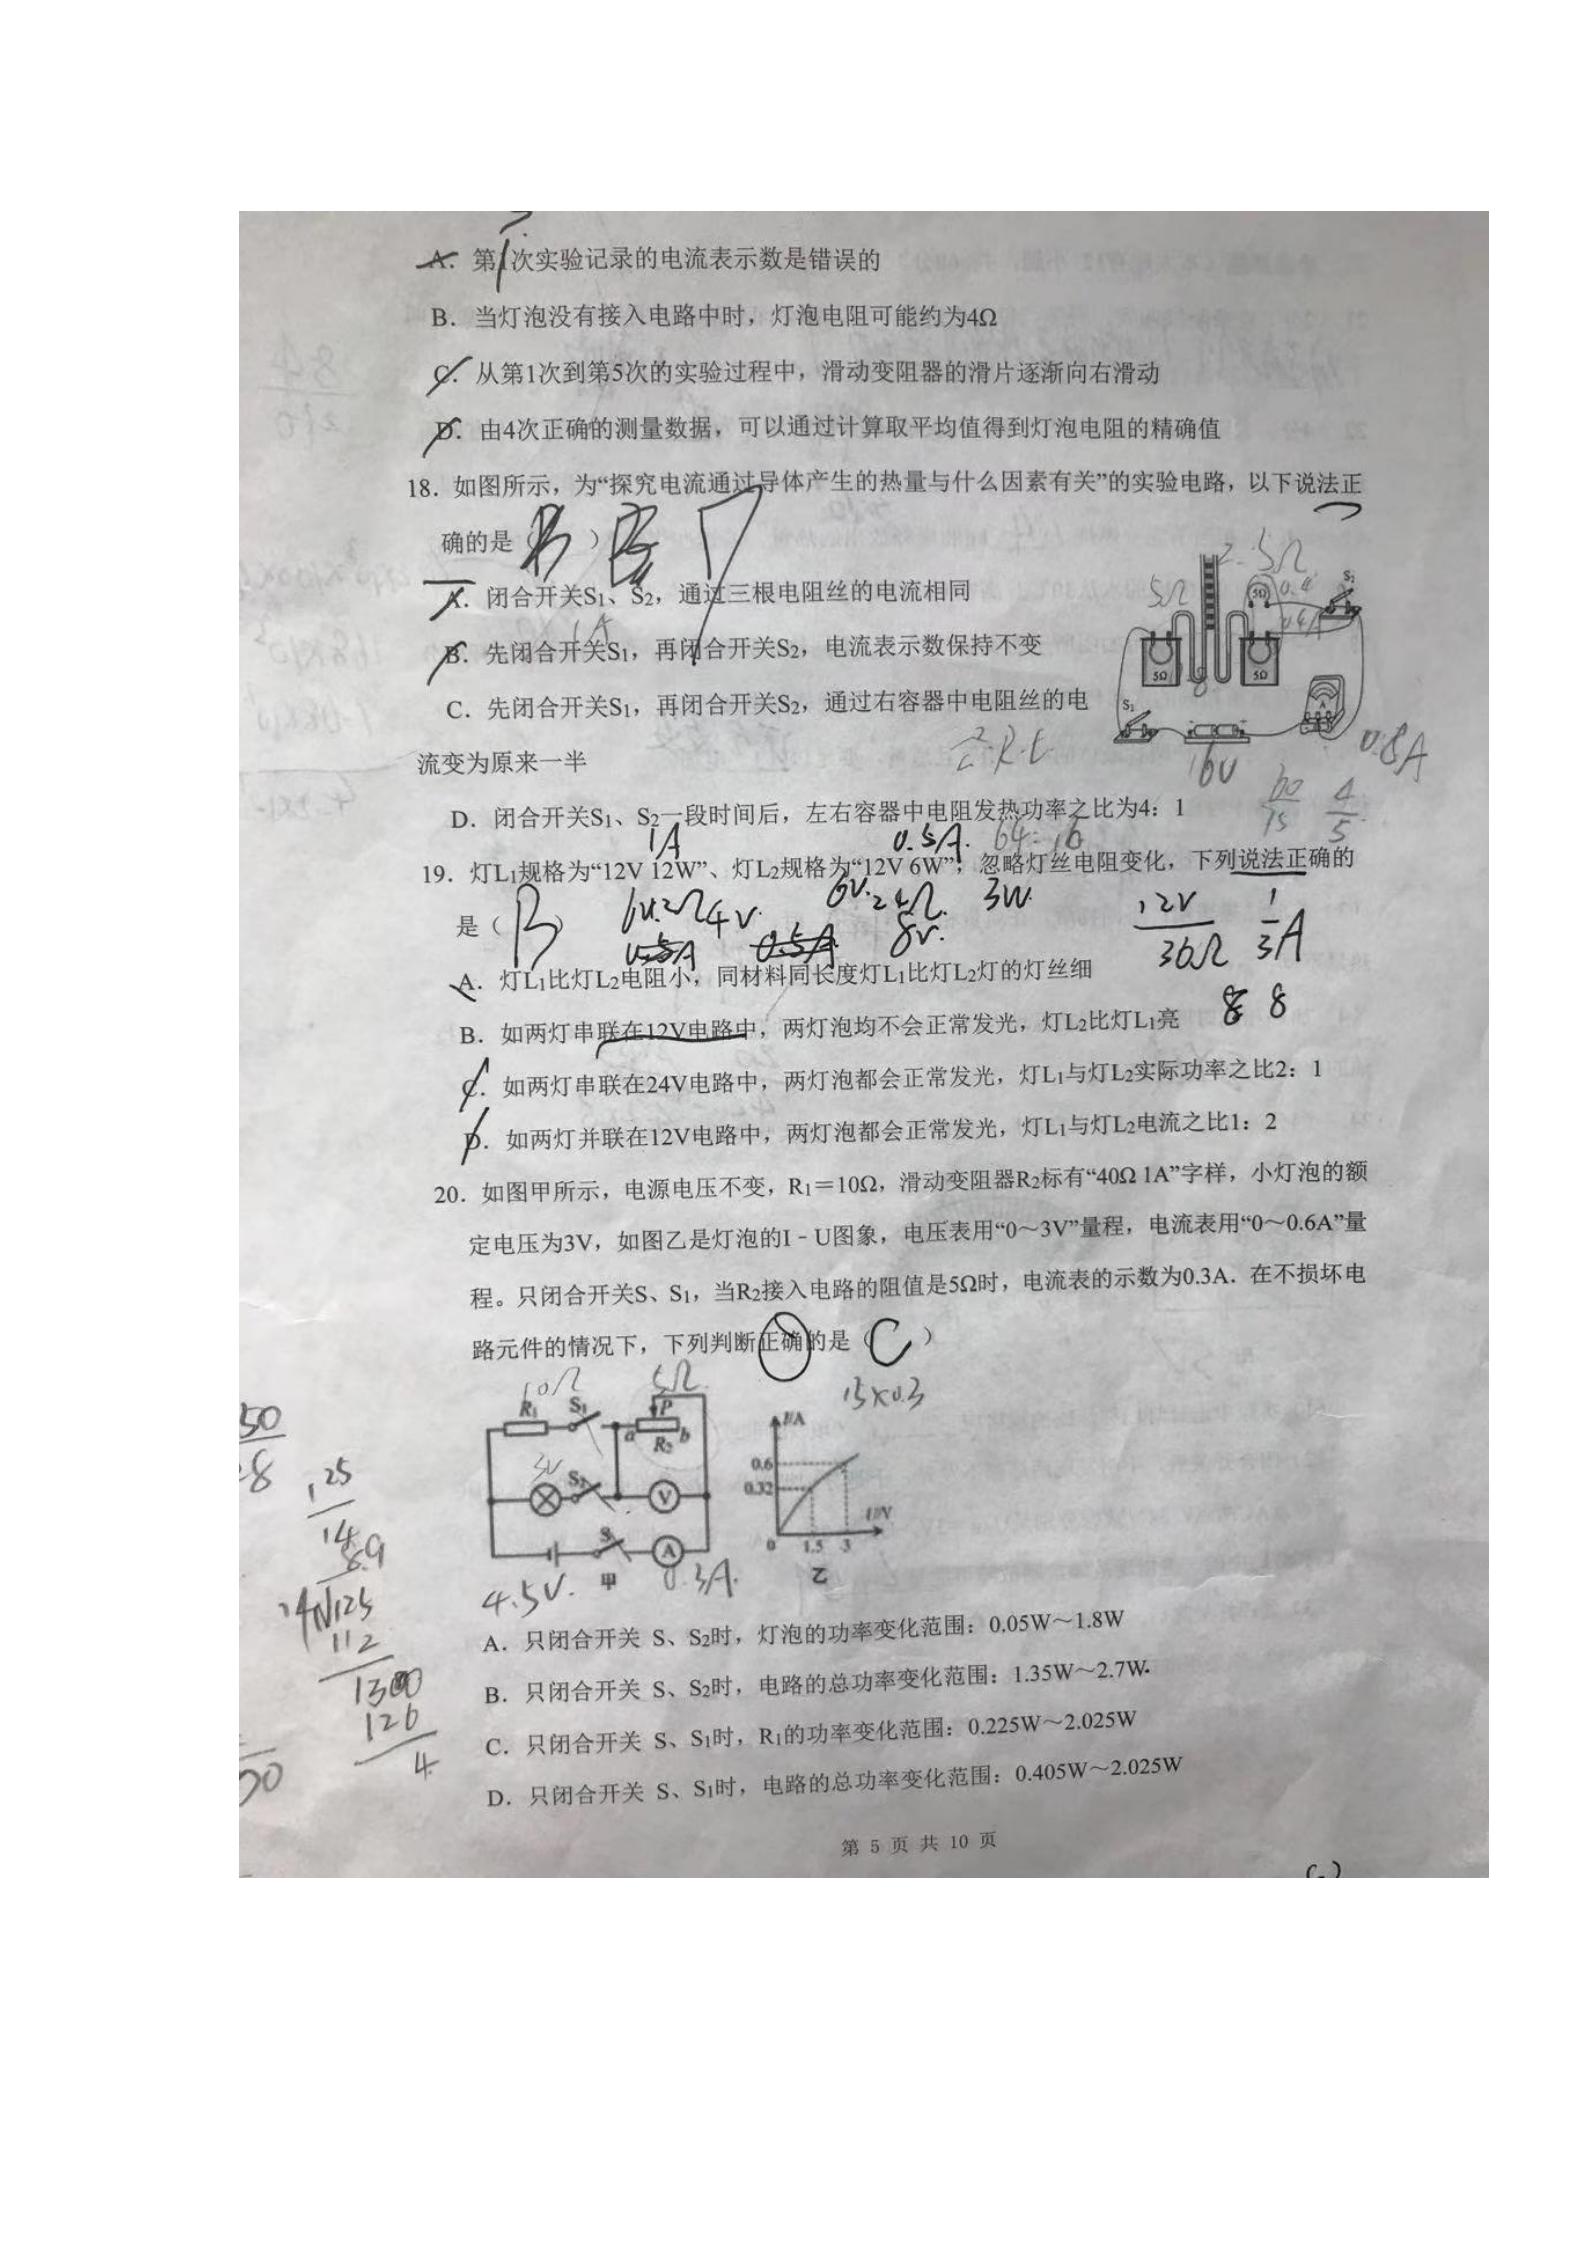 A. 第1次实验记录的电流表示数是错误的
B. 当灯泡没有接入电路中时，灯泡电阻可能约为4Ω
C. 从第1次到第5次的实验过程中，滑动变阻器的滑片逐渐向右滑动
D. 由4次正确的测量数据，可以通过计算取平均值得到灯泡电阻的精确值
18. 如图所示，为“探究电流通过导体产生的热量与什么因素有关”的实验电路，以下说法正
确的是（ ）
2.5Ω
A. 闭合开关S1、S2，通过三根电阻丝的电流相同
5Ω 5Ω 0.4 S2
1A 0.4A
B. 先闭合开关S1，再闭合开关S2，电流表示数保持不变
5Ω 5Ω
C. 先闭合开关S1，再闭合开关S2，通过右容器中电阻丝的电
S1 A
流变为原来一半
I²Rt 0.8A
D. 闭合开关S1、S2一段时间后，左右容器中电阻发热功率之比为4：1
60/15 4/5
1A 0.5A. 64:16
19. 灯L1规格为“12V 12W”、灯L2规格为“12V 6W”，忽略灯丝电阻变化，下列说法正确的
是（ B ）
4V. 6V. 24Ω. 3W 12V/36Ω 1/3A
0.5A 0.5A 8V.
A. 灯L1比灯L2电阻小，同材料同长度灯L1比灯L2灯的灯丝细
8 8
B. 如两灯串联在12V电路中，两灯泡均不会正常发光，灯L2比灯L1亮
C. 如两灯串联在24V电路中，两灯泡都会正常发光，灯L1与灯L2实际功率之比2：1
D. 如两灯并联在12V电路中，两灯泡都会正常发光，灯L1与灯L2电流之比1：2
20. 如图甲所示，电源电压不变，R1＝10Ω，滑动变阻器R2标有“40Ω 1A”字样，小灯泡的额
定电压为3V，如图乙是灯泡的I﹣U图象，电压表用“0～3V”量程，电流表用“0～0.6A”量
程。只闭合开关S、S1，当R2接入电路的阻值是5Ω时，电流表的示数为0.3A．在不损坏电
路元件的情况下，下列判断正确的是（ C ）
10Ω 5Ω 15×0.3
R1 S1 P
a R2 b
3V S2 V
S A
4.5V. 甲 0.3A.
I/A
0.6
0.32
U/V
0 1.5 3
乙
50
8
125
14
8.9
14 125
112
1300
126
4
A. 只闭合开关 S、S2时，灯泡的功率变化范围：0.05W～1.8W
B. 只闭合开关 S、S2时，电路的总功率变化范围：1.35W～2.7W
C. 只闭合开关 S、S1时，R1的功率变化范围：0.225W～2.025W
D. 只闭合开关 S、S1时，电路的总功率变化范围：0.405W～2.025W
第 5 页 共 10 页